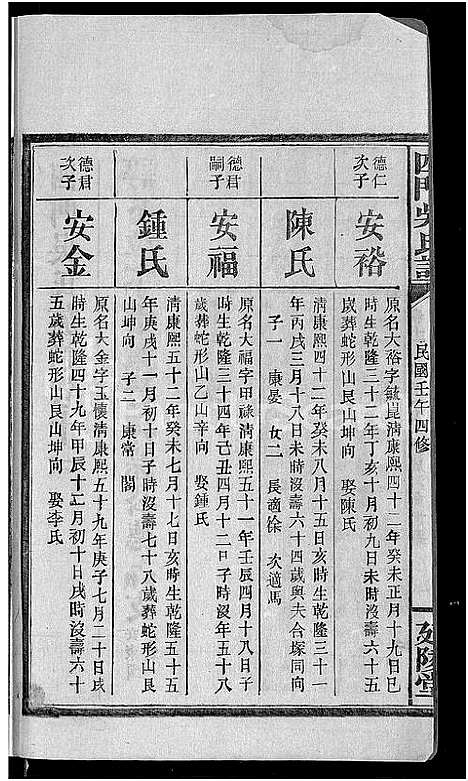 四門吳氏譜
民國壬午四修
延陵堂
德仁
次子
安裕
原名大裕字毓崑清康熙四十二年癸未正月十九日巳
時生乾隆三十二年丁亥十月初九日未時沒壽六十五
歲葬蛇形山艮山坤向 娶陳氏
陳氏
清康熙四十二年癸未八月十五日亥時生乾隆三十一
年丙戌三月十八日未時沒壽六十四歲與夫合塚同向
子一 康晏 女二 長適徐 次適馬
德君
嗣子
安福
原名大福字甲祿清康熙五十一年壬辰四月十八日子
時生乾隆三十四年己丑四月十二日子時沒年五十八
歲葬蛇形山乙山辛向 娶鍾氏
鍾氏
清康熙五十二年癸未七月十七日亥時生乾隆五十五
年庚戌十一月初十日子時沒壽七十八歲葬蛇形山艮
山坤向 子二 康常 閤
德君
次子
安金
原名大金字玉懷清康熙五十九年庚子七月二十日戌
時生乾隆四十九年甲辰十二月初十日戌時沒壽六十
五歲葬蛇形山艮山坤向 娶李氏